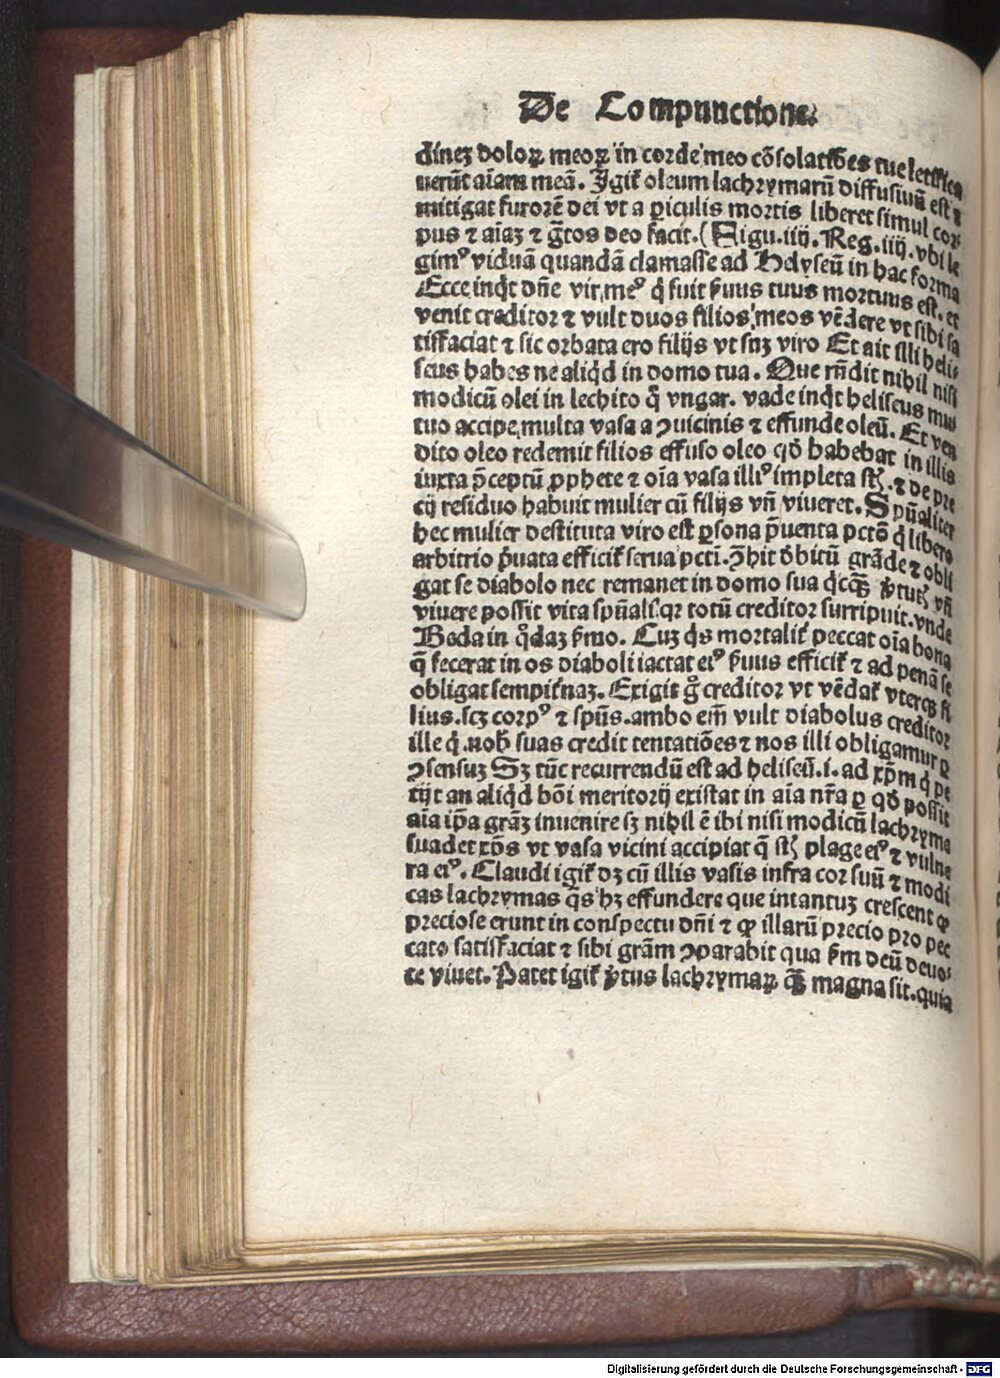 De Compunctione.
dineȝ doloꝝ meoꝝ in corde meo cōsolatiōes tue letifica
uerūt aīam meā. Igit̄ oleum lachrymarū diffusiuū est ⁊
mitigat furorē dei vt a ꝑiculis mortis liberet simul cor
pus ⁊ aīaȝ ⁊ gr̄tos deo facit. (Figu. iiij. Reg. iiij. vbi le
gimꝰ viduā quandā clamasse ad Helyseū in hac forma
Ecce inq̇t dn̄e vir meꝰ q̇ fuit ẜuus tuus mortuus est. et
venit creditor ⁊ vult duos filios meos vēdere vt sibi sa
tisfaciat ⁊ sic orbata ero filijs vt suȝ viro Et ait illi heli
seus habes ne aliq̇d in domo tua. Que rn̄dit nihil nisi
modicū olei in lechito q̄ vngar. vade inq̇t heliseus mu
tuo accipe multa vasa a ꝯuicinis ⁊ effunde oleū. Et ven
dito oleo redemit filios effuso oleo qd̄ habebat in illis
iuxta p̄ceptū ꝓphete ⁊ oīa vasa illiꝰ impleta st̄. ⁊ de pre
cij residuo habuit mulier cū filijs vn̄ viueret. Spūaliter
hec mulier destituta viro est ꝑsona p̄uenta pctō q̇ libero
arbitrio p̄uata efficit̄ serua pcti. ꝯhit dbitū grāde ⁊ obli
gat se diabolo nec remanet in domo sua q̇cq̄ꝫ v̄tutꝭ vn̄
viuere possit vita spūali. qꝛ totū creditor surripuit. vnde
Beda in q̊daȝ ẜmo. Cuȝ q̇s mortalit̄ peccat oīa bona
q̄ fecerat in os diaboli iactat eiꝰ ẜuus efficit̄ ⁊ ad penā se
obligat sempit̄naȝ. Exigit g̊ creditor vt vēdat̄ vterqꝫ fi
lius. scȝ corpꝰ ⁊ spūs. ambo em̄ vult diabolus creditor
ille q̇ nob̄ suas credit tentatiōes ⁊ nos illi obligamur ꝑ
ꝯsensuȝ Sȝ tūc recurrendū est ad heliseū .i. ad xp̄m q̇ pe
tijt an aliq̇d bōi meritorij existat in aīa nr̄a ꝑ qd̄ possit
aīa ip̄a grāȝ inuenire sȝ nihil ē ibi nisi modicū lachryme
suadet xp̄s vt vasa vicini accipiat q̄ st̄ plage eiꝰ ⁊ vulne
ra eiꝰ. Claudi igit̄ dȝ cū illis vasis infra cor suū ⁊ modi
cas lachrymas q̄s hȝ effundere que intantuȝ crescent ꝙ
preciose erunt in conspectu dn̄i ⁊ ꝙ illarū precio pro pec
cato satisfaciat ⁊ sibi grām ꝯparabit qua ẜm deū deuo
te viuet. Patet igit̄ v̄tus lachrymaꝝ q̄ꝫ magna sit. quia
Digitalisierung gefördert durch die Deutsche Forschungsgemeinschaft - DFG